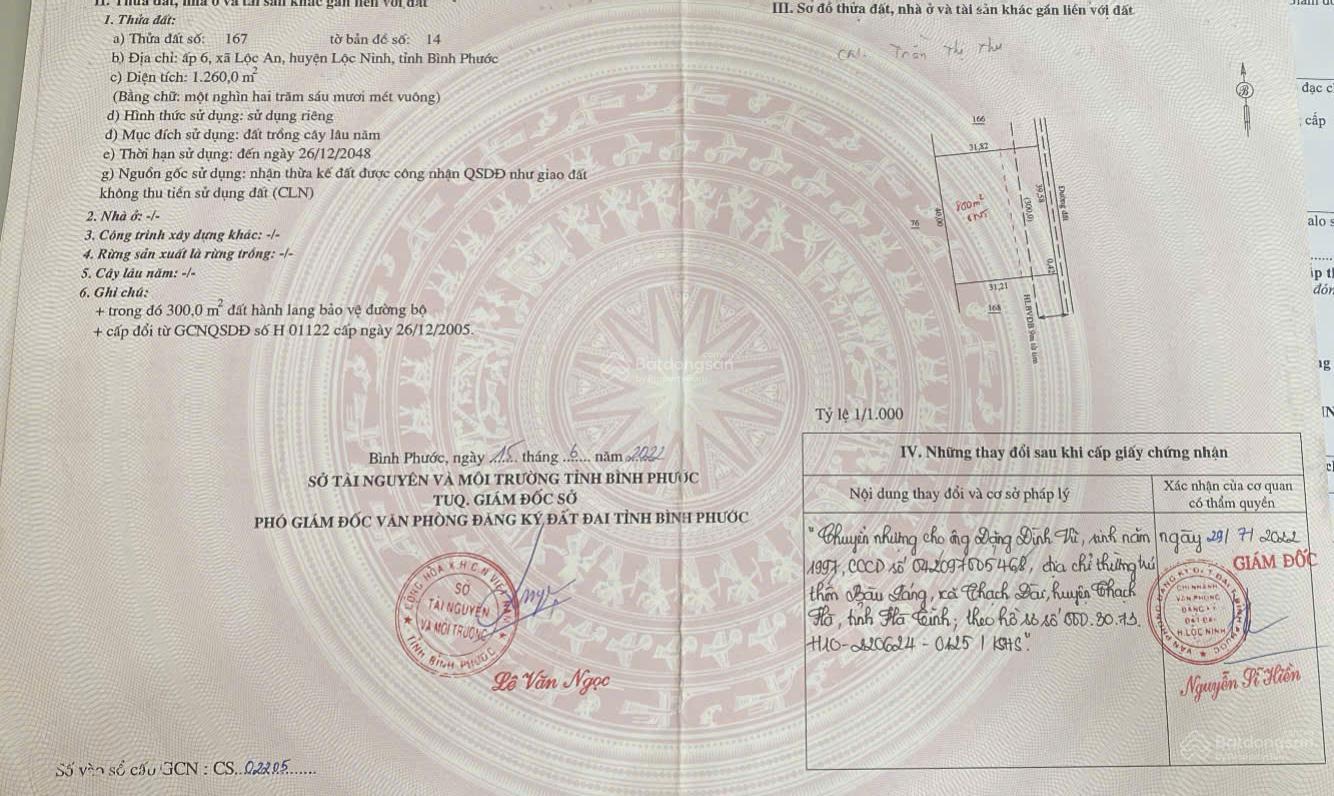 II. Thửa đất, nhà ở và tài sản khác gắn liền với đất
1. Thửa đất:
a) Thửa đất số: 167 tờ bản đồ số: 14
b) Địa chỉ: ấp 6, xã Lộc An, huyện Lộc Ninh, tỉnh Bình Phước
c) Diện tích: 1.260,0 m²
(Bằng chữ: một nghìn hai trăm sáu mươi mét vuông)
d) Hình thức sử dụng: sử dụng riêng
đ) Mục đích sử dụng: đất trồng cây lâu năm
e) Thời hạn sử dụng: đến ngày 26/12/2048
g) Nguồn gốc sử dụng: nhận thừa kế đất được công nhận QSDĐ như giao đất
không thu tiền sử dụng đất (CLN)
2. Nhà ở: -/-
3. Công trình xây dựng khác: -/-
4. Rừng sản xuất là rừng trồng: -/-
5. Cây lâu năm: -/-
6. Ghi chú:
+ trong đó 300,0 m² đất hành lang bảo vệ đường bộ
+ cấp đổi từ GCNQSDĐ số H 01122 cấp ngày 26/12/2005.
Bình Phước, ngày 15 tháng 6 năm 2022
SỞ TÀI NGUYÊN VÀ MÔI TRƯỜNG TỈNH BÌNH PHƯỚC
TUQ. GIÁM ĐỐC SỞ
PHÓ GIÁM ĐỐC VĂN PHÒNG ĐĂNG KÝ ĐẤT ĐAI TỈNH BÌNH PHƯỚC
CỘNG HÒA X.H.C.N VIỆT NAM
SỞ
TÀI NGUYÊN
VÀ MÔI TRƯỜNG
TỈNH BÌNH PHƯỚC
Lê Văn Ngọc
Số vào sổ cấp GCN : CS 02205
III. Sơ đồ thửa đất, nhà ở và tài sản khác gắn liền với đất
Trần Thị Thu
B
166
31,82
39,58
Đường đất
(300,0)
800m²
76
40,00
0,42
31,21
168
Tỷ lệ 1/1.000
IV. Những thay đổi sau khi cấp giấy chứng nhận
Nội dung thay đổi và cơ sở pháp lý
Xác nhận của cơ quan
có thẩm quyền
"Chuyển nhượng cho ông Đặng Đình, sinh năm
1997, CCCD số 042097005468, địa chỉ thường trú
thôn Bàu Láng, xã Thạch Đài, huyện Thạch
Hà, tỉnh Hà Tĩnh; theo hồ sơ số
H10-220624-0425/KSHS."
ngày 29/7/2022
GIÁM ĐỐC
VĂN PHÒNG ĐĂNG KÝ ĐẤT ĐAI T.BÌNH PHƯỚC
CHI NHÁNH
VĂN PHÒNG
ĐĂNG KÝ
ĐẤT ĐAI
H.LỘC NINH
Nguyễn Sĩ Hiền
Batdongsan
Batdongsan
đạc
cấp
alo